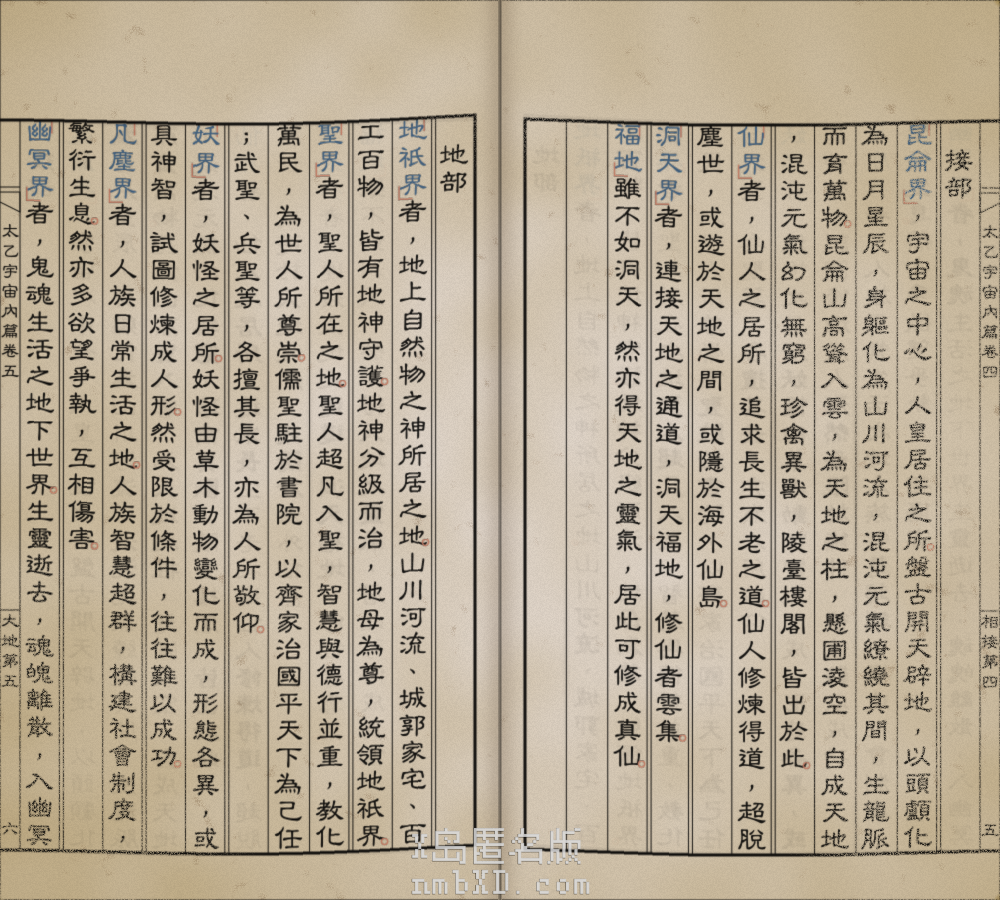 太乙宇宙內篇卷四
相接第四
五
接部
昆侖界，宇宙之中心，人皇居住之所。盤古開天辟地，以頭顱化
為日月星辰，身軀化為山川河流，混沌元氣繚繞其間，生龍脈
而育萬物。昆侖山高聳入雲，為天地之柱，懸圃淩空，自成天地
，混沌元氣幻化無窮，珍禽異獸，陵臺樓閣，皆出於此。
仙界者，仙人之居所，追求長生不老之道。仙人修煉得道，超脫
塵世，或遊於天地之間，或隱於海外仙島。
洞天界者，連接天地之通道，洞天福地，修仙者雲集。
福地雖不如洞天，然亦得天地之靈氣，居此可修成真仙。
地部
地祇界者，地上自然物之神所居之地。山川河流、城郭家宅、百
工百物，皆有地神守護。地神分級而治，地母為尊，統領地祇界。
聖界者，聖人所在之地。聖人超凡入聖，智慧與德行並重，教化
萬民，為世人所尊崇。儒聖駐於書院，以齊家治國平天下為己任
；武聖、兵聖等，各擅其長，亦為人所敬仰。
妖界者，妖怪之居所。妖怪由草木動物變化而成，形態各異，或
具神智，試圖修煉成人形。然受限於條件，往往難以成功。
凡塵界者，人族日常生活之地。人族智慧超群，構建社會制度，
繁衍生息。然亦多欲望爭執，互相傷害。
幽冥界者，鬼魂生活之地下世界。生靈逝去，魂魄離散，入幽冥
太乙宇宙內篇卷五
大地第五
六
X岛匿名版
nmbXD.com